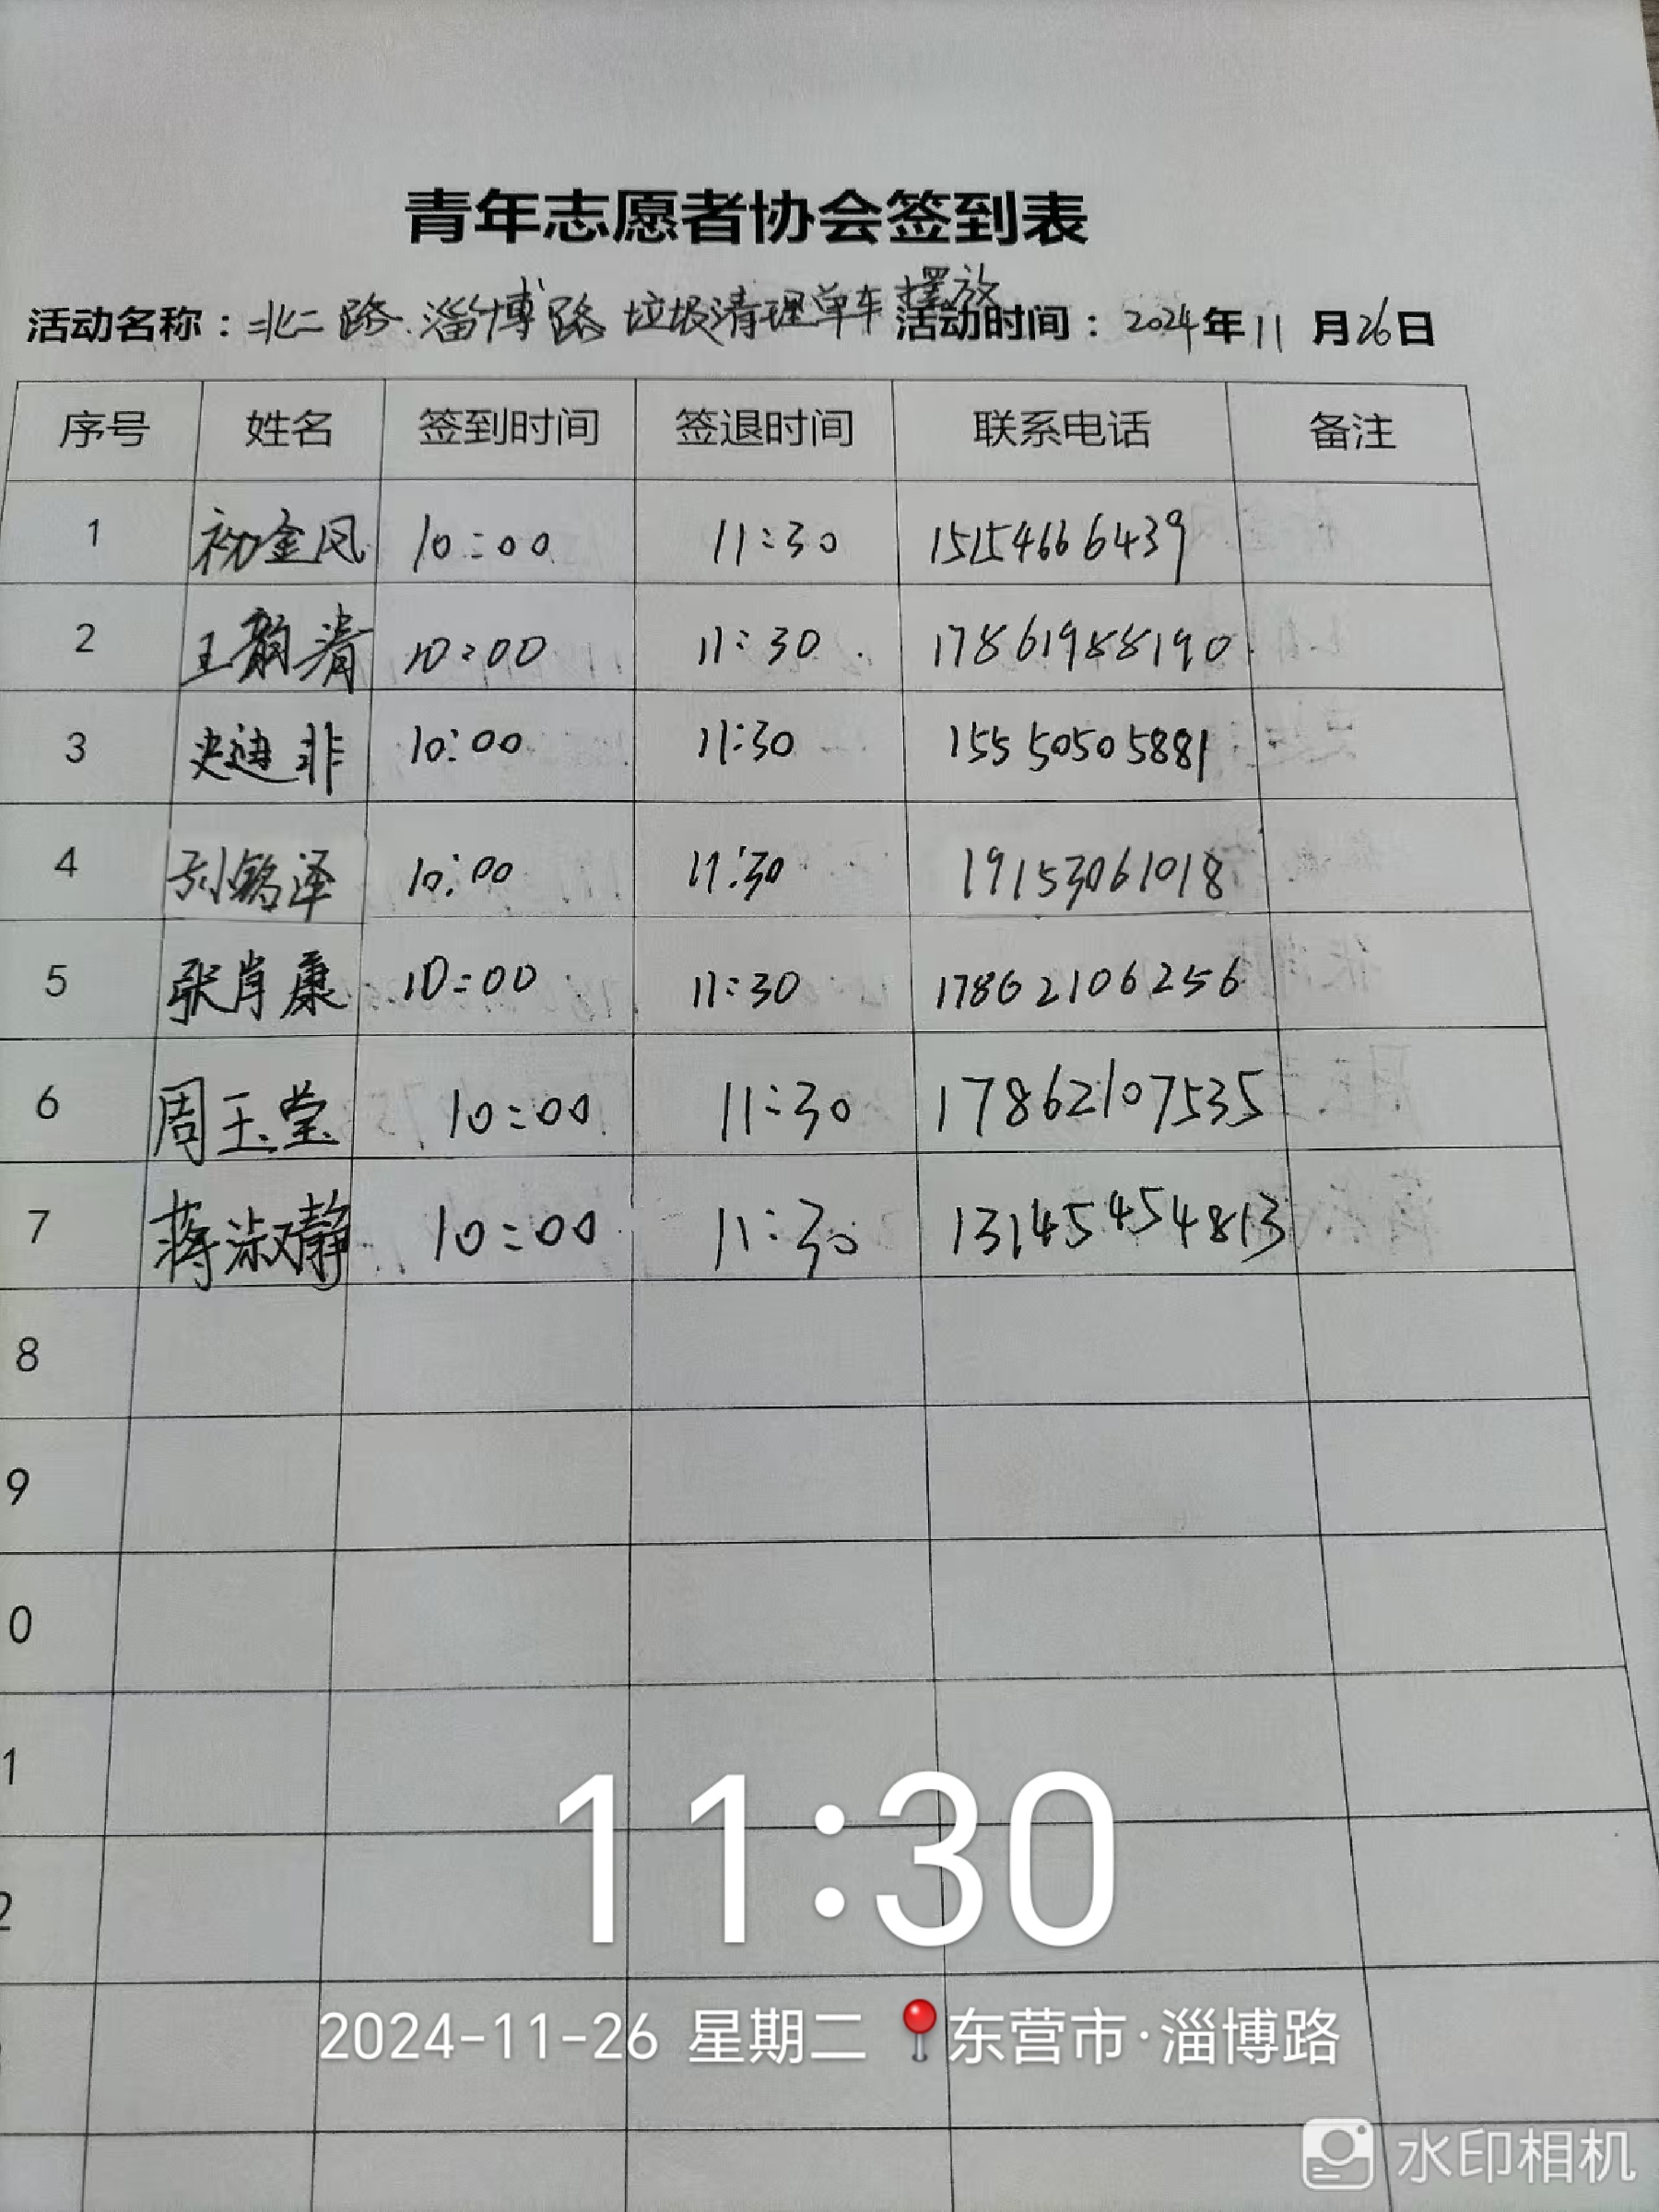 青年志愿者协会签到表
活动名称：北二路.淄博路垃圾清理单车摆放 活动时间：2024年11月26日
序号 姓名 签到时间 签退时间 联系电话 备注
1 初金凤 10:00 11:30 15154666439
2 王韵清 10:00 11:30 17861988190
3 史迪非 10:00 11:30 15550505881
4 孙铭泽 10:00 11:30 19153061018
5 张肖康 10:00 11:30 17862106256
6 周玉堂 10:00 11:30 17862107535
7 蒋淑静 10:00 11:30 13145454813
8
9
0
1
2
11:30
2024-11-26 星期二 东营市·淄博路
水印相机